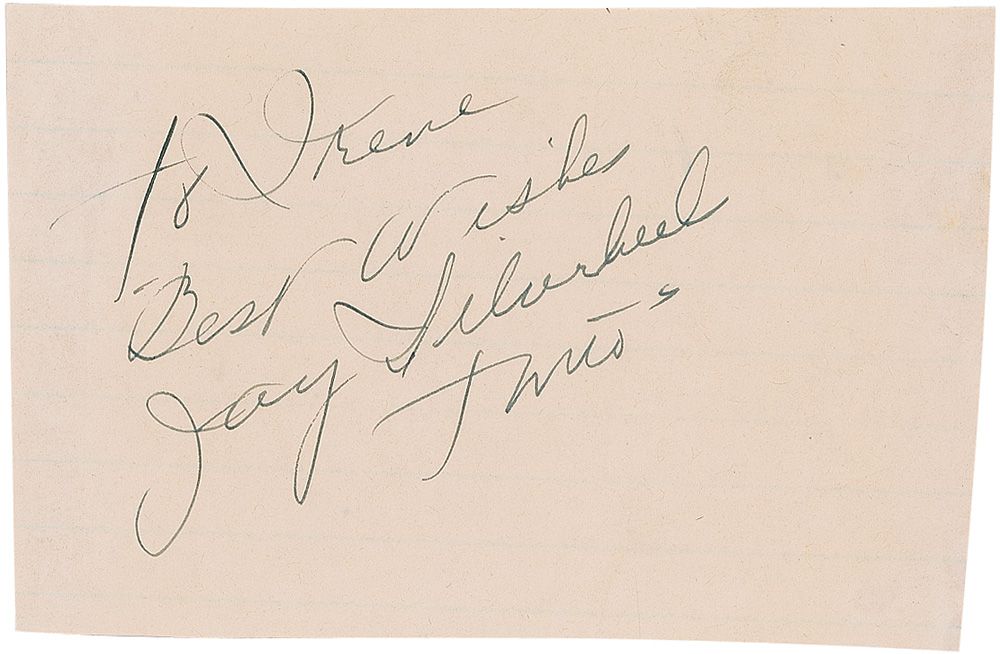 To Irene
Best Wishes
Jay Silverheels
"Tonto"